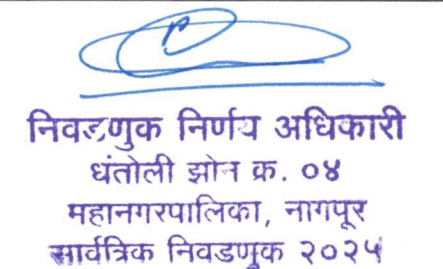 निवडणुक निर्णय अधिकारी
धंतोली झोन क्र. ०४
महानगरपालिका, नागपूर
सार्वत्रिक निवडणुक २०२५